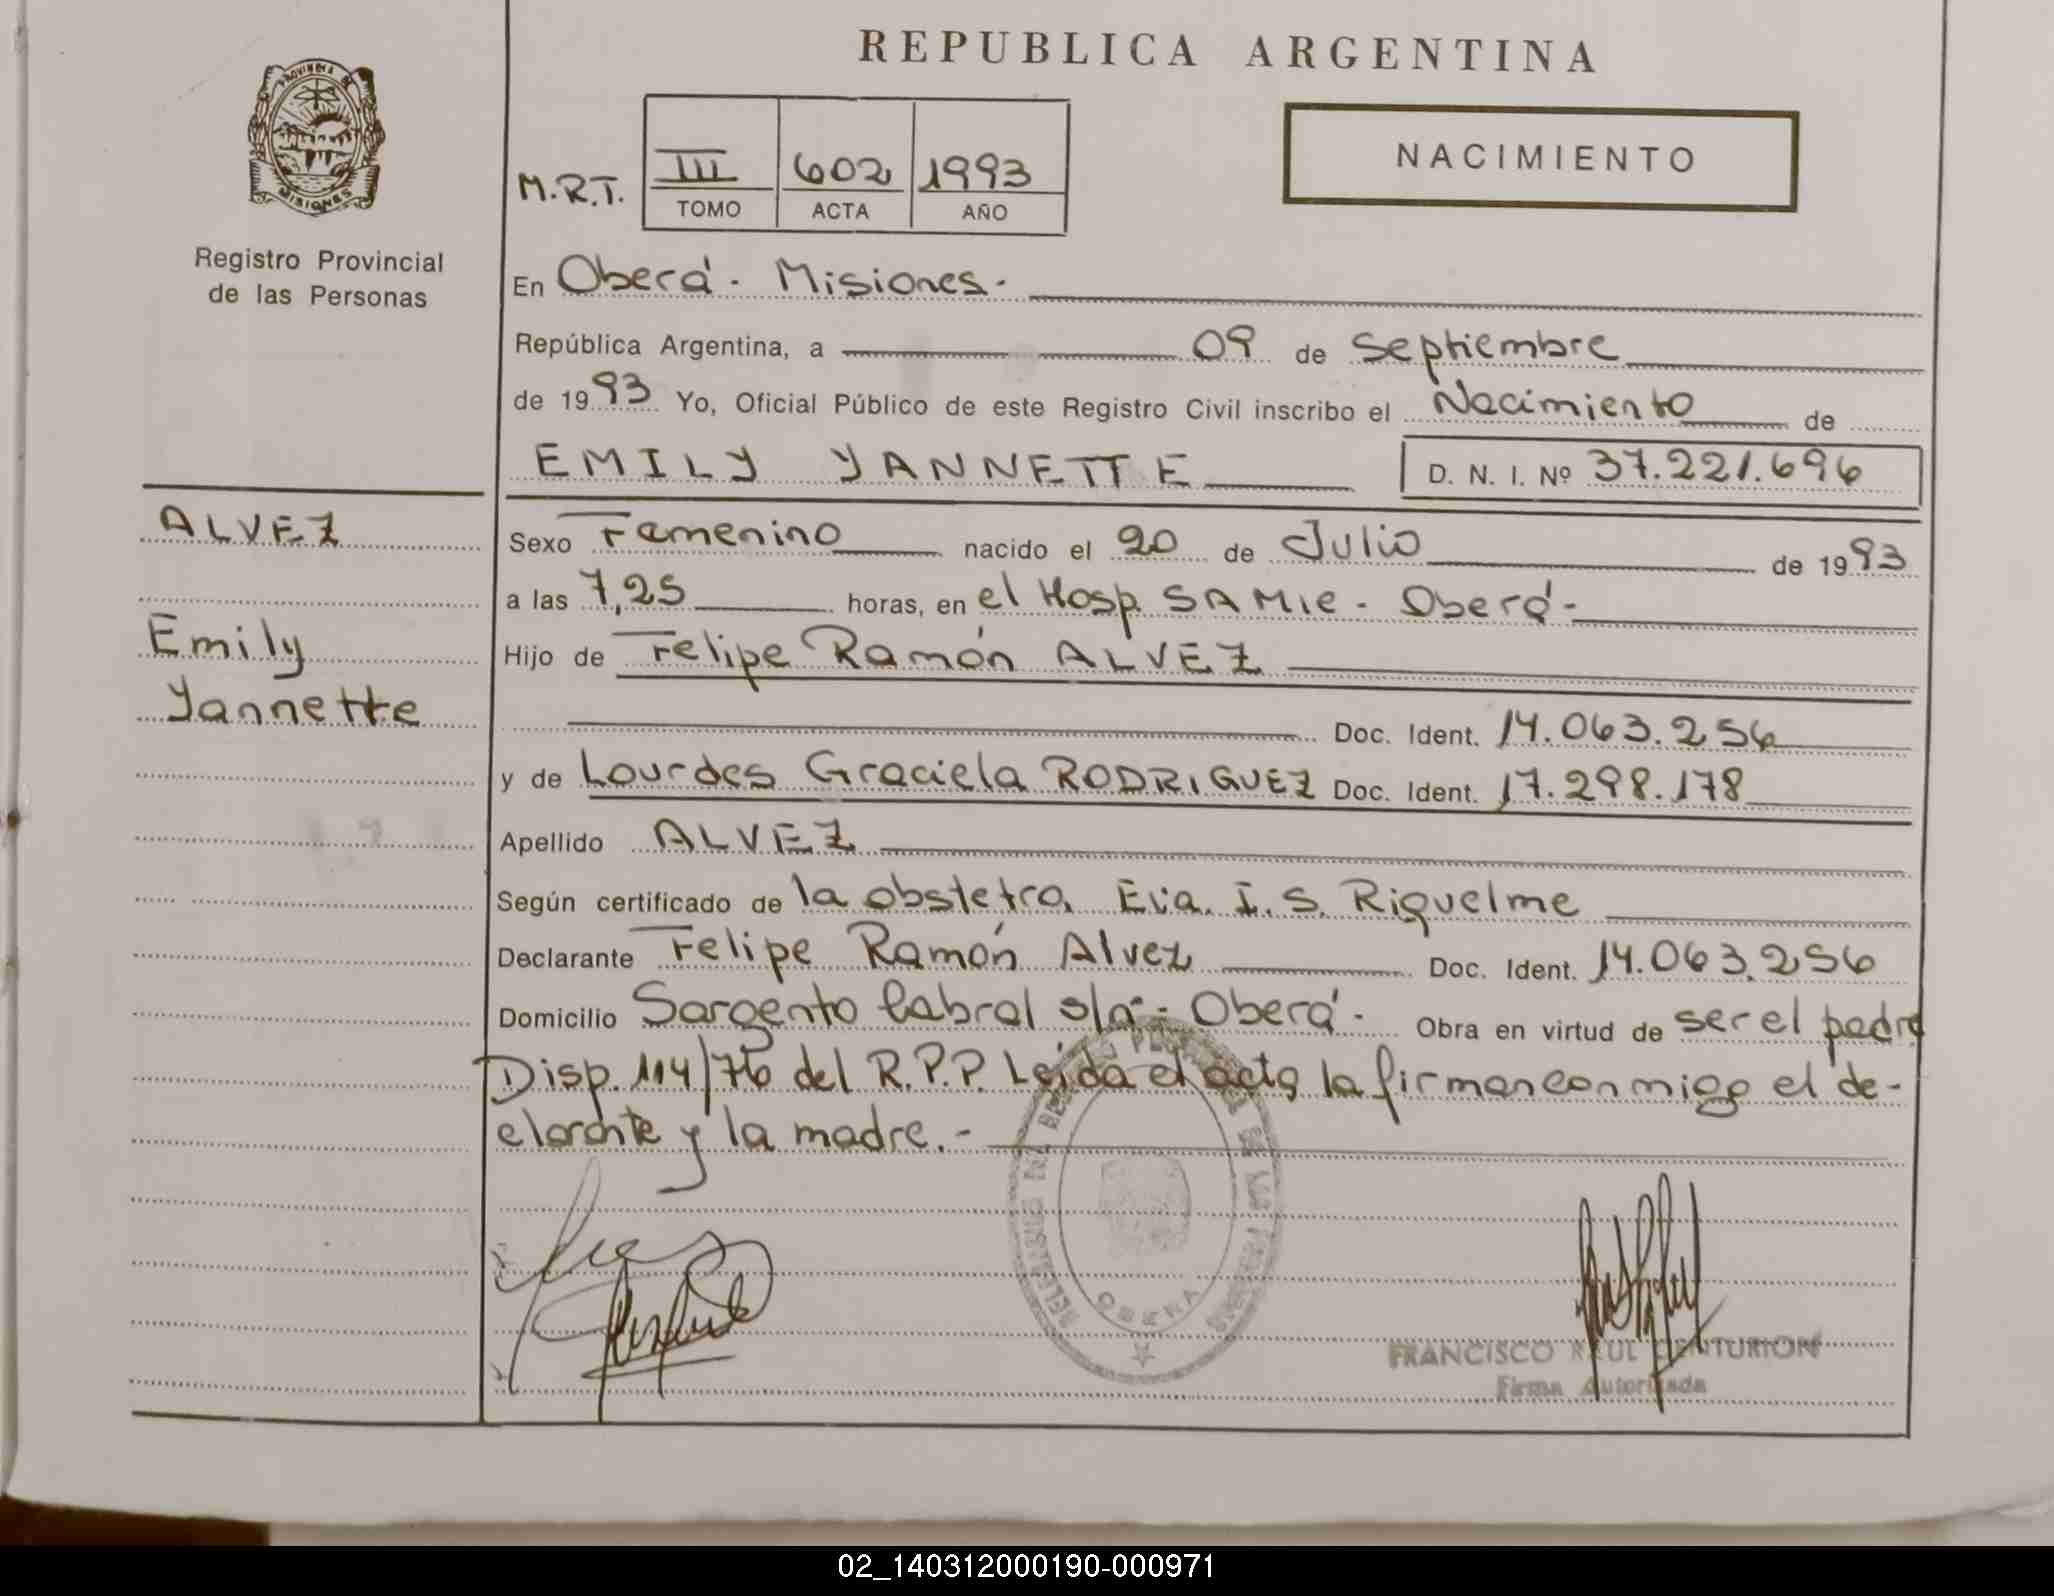 REPUBLICA ARGENTINA
PROVINCIA DE
MISIONES
Registro Provincial
de las Personas
M.R.T.
III 602 1993
TOMO ACTA AÑO
NACIMIENTO
En Oberá - Misiones -
República Argentina, a 09 de Septiembre
de 1993 Yo, Oficial Público de este Registro Civil inscribo el Nacimiento de
EMILY YANNETTE D. N. I. Nº 37.221.696
ALVEZ
Emily
Yannette
Sexo Femenino nacido el 20 de Julio de 1993
a las 7,25 horas, en el Hosp. SAMIC - Oberá -
Hijo de Felipe Ramón ALVEZ
Doc. Ident. 14.063.256
y de Lourdes Graciela RODRIGUEZ Doc. Ident. 17.298.178
Apellido ALVEZ
Según certificado de la obstetra, I. S. Riquelme
Declarante Felipe Ramón Alvez Doc. Ident. 14.063.256
Domicilio Sargento Cabral s/nº - Oberá - Obra en virtud de ser el padre
Disp. 114/76 del R.P.P. Leída el acta la firman conmigo el de-
clarante y la madre. -
FRANCISCO RAUL CENTURION
Firma Autorizada
02_140312000190-000971